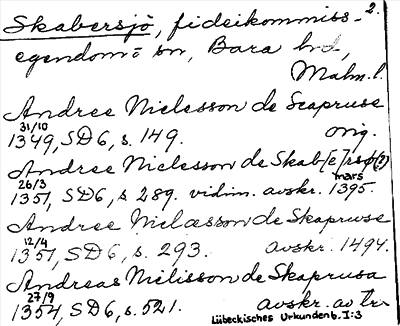 2.
Skabersjö, fideikommiss-
egendom i sn, Bara hd,
Malm. l.
Andree Nielesson de Scapruse
31/10 1349, SD6, s. 149. orig.
Andree Niclesson de Skab[e]rsø(?)
26/3 1351, SD6, s 289. vidim. avskr. mars 1395.
Andree Nielæsson de Skapruse
12/4 1351, SD6, s. 293. avskr. 1494.
Andreas Nielisson de Skaprusa
27/9 1354, SD6, s. 521. avskr. av tr.
Lübeckisches Urkundenb. I:3